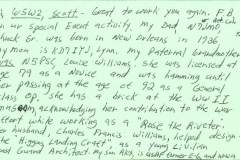 G5W2, Scott - Great to work you again. F.B.
in our Special Event activity. My 2nd
was born in New Orleans in 1736
my mom is KD9ITJ, Lynn. My paternal Grandmother
was N5PSC Louise Williams, she was licensed at
age 79 as a Novice and was hamming until
her passing at the age of 92 as a General
class op. She has a brick at the WW II
acknowledging her contribution to the war
effort while working as a "Rosie the Riveter".
Her husband, Charles Francis Williams, helped design
the "Higgins Landing Craft", as a young Civilian
Coast Guard Architect. My son Alex, is